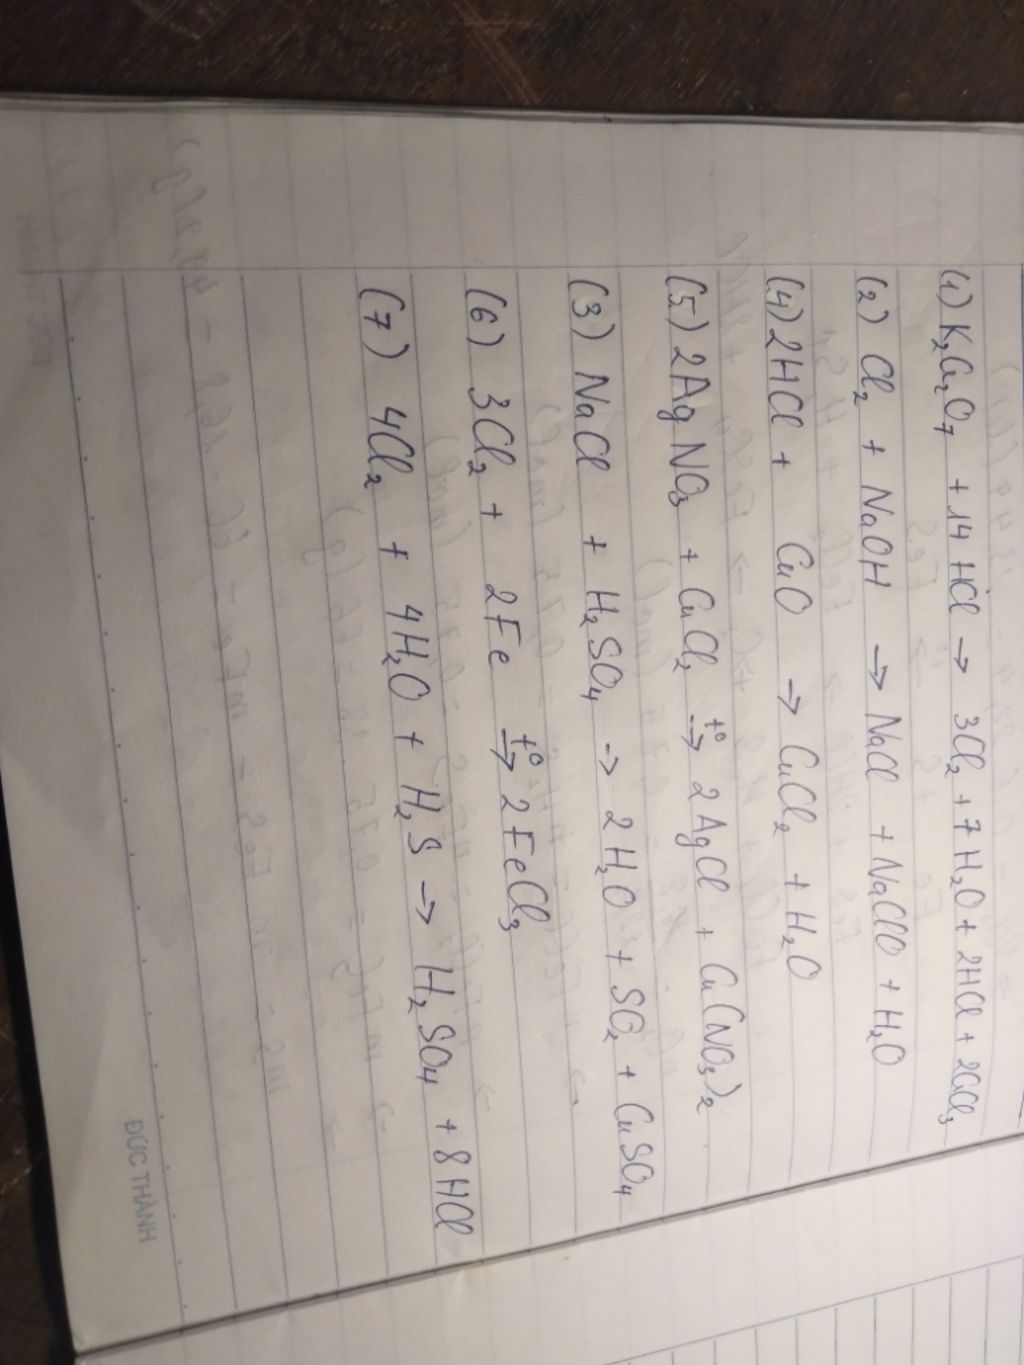 (1) K₂Cr₂O₇ + 14 HCl → 3Cl₂ + 7H₂O + 2HCl + 2CrCl₃
(2) Cl₂ + NaOH → NaCl + NaClO + H₂O
(4) 2HCl + CuO → CuCl₂ + H₂O
(5) 2AgNO₃ + CuCl₂ t° → 2AgCl + Cu(NO₃)₂
(3) NaCl + H₂SO₄ → 2H₂O + SO₂ + CuSO₄
(6) 3Cl₂ + 2Fe t° → 2FeCl₃
(7) 4Cl₂ + 4H₂O + H₂S → H₂SO₄ + 8HCl
ĐỨC THÀNH